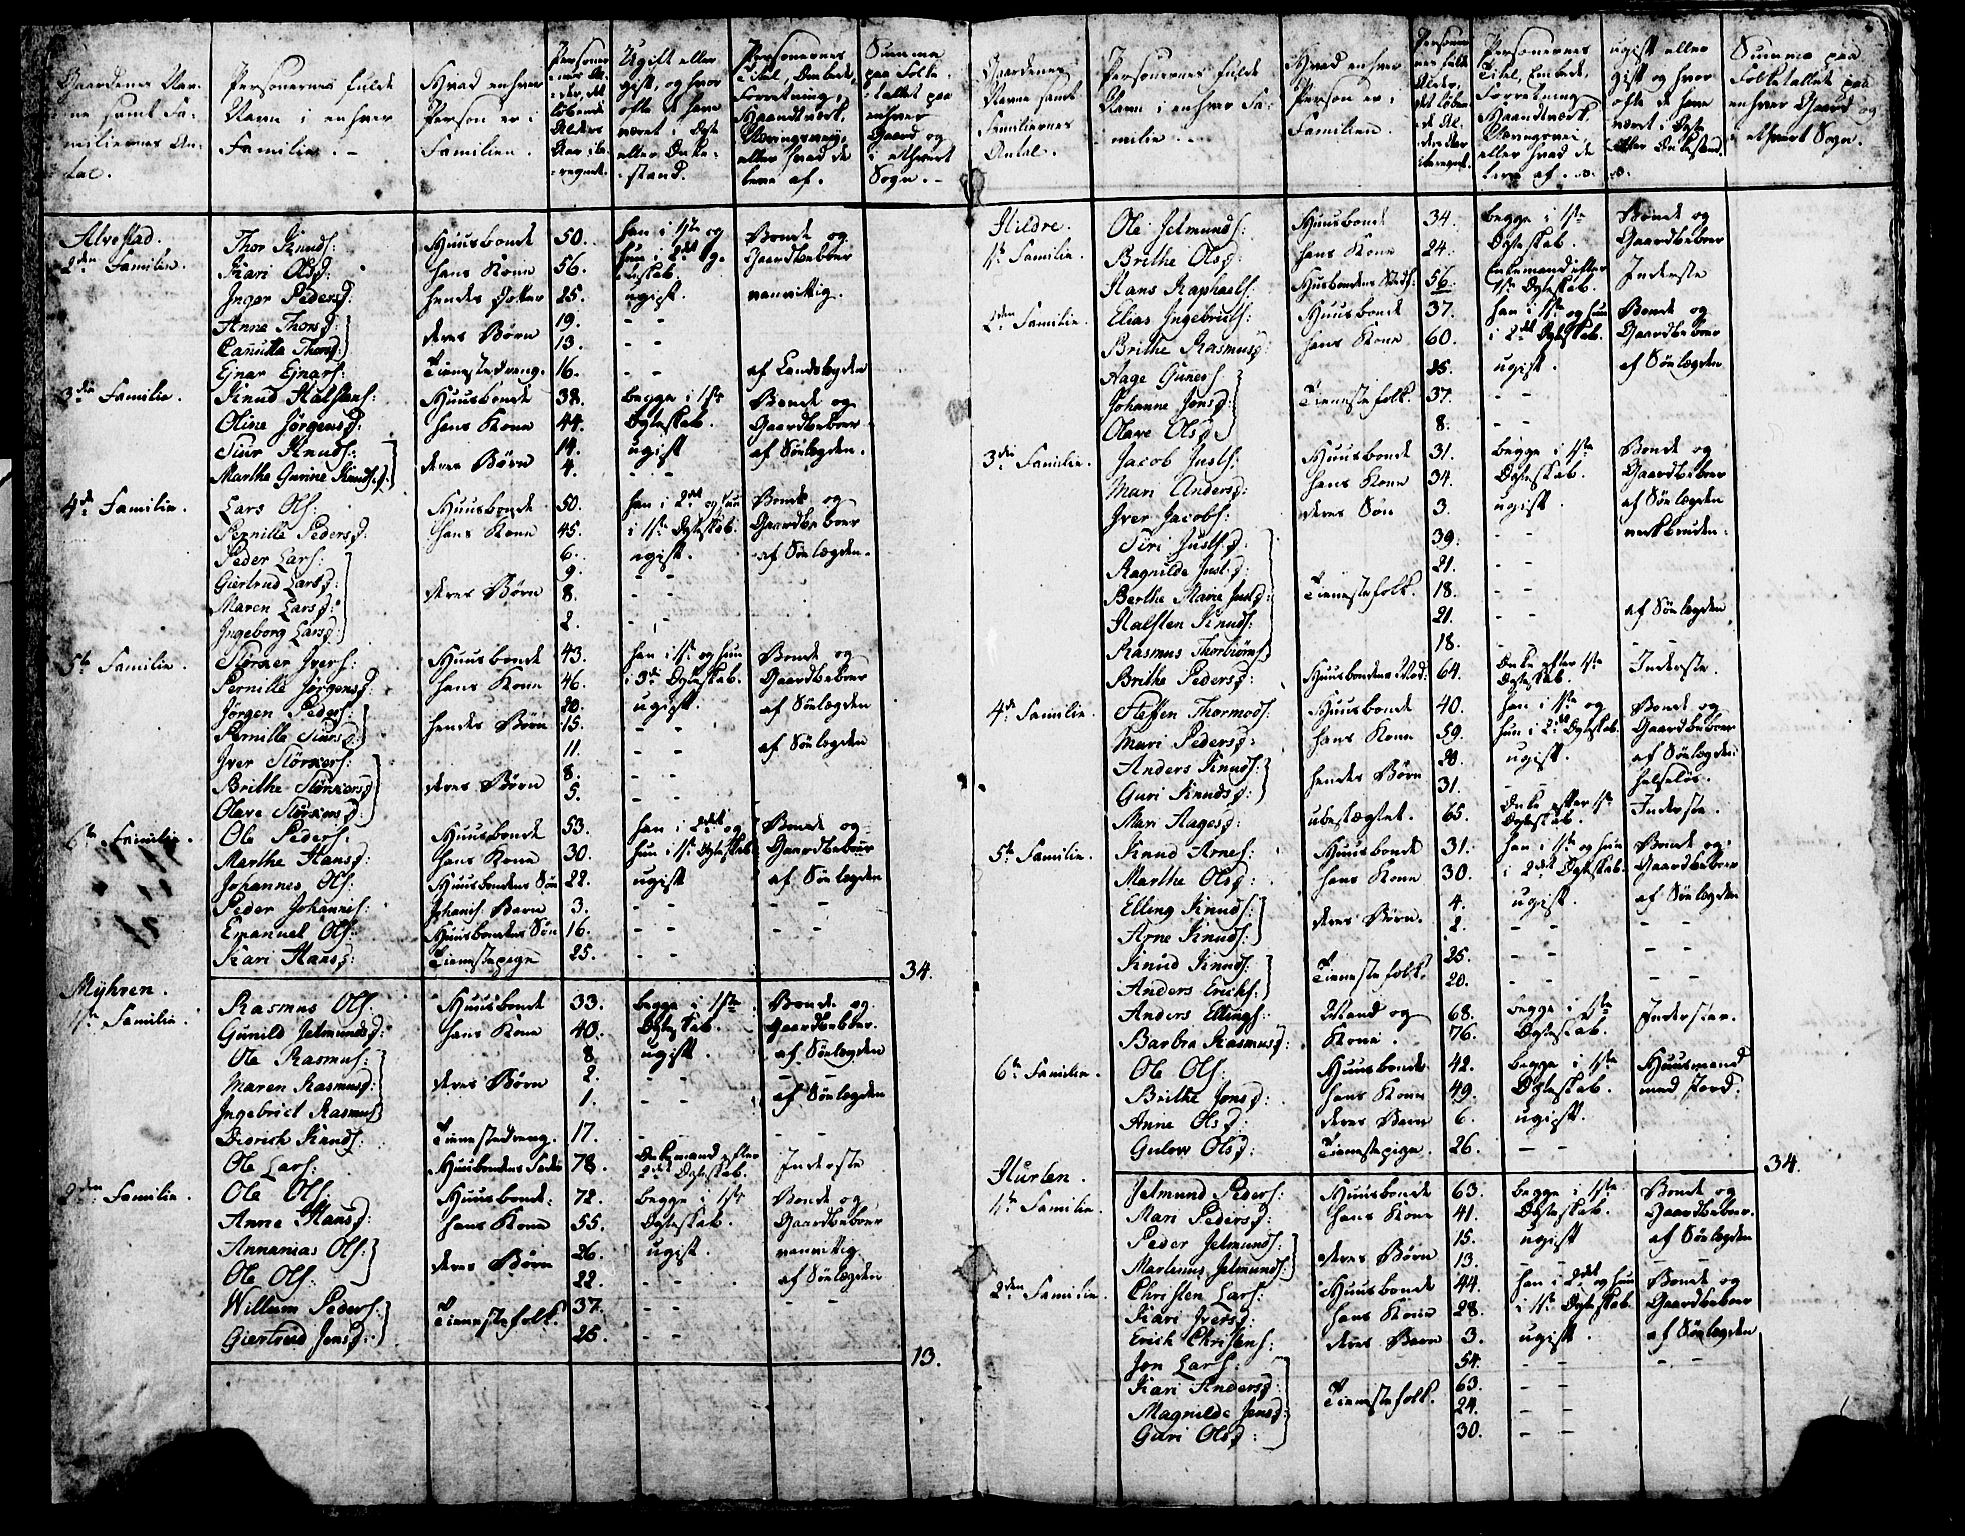 Gaardenes Nav-
ne samt Fa-
miliernes An-
tal.
Personernes fulde
Navn i enhver
Familie. -
Hvad enhver
Person er i
Familien. -
Ugift eller
gift, og hvor
ofte de have
været i Ægte
eller Enke-
stand.
Personernes
Titel, Embede,
Forretning,
Haandværk,
Næringsvei,
eller hvad de
leve af.
Summa
paa Folke-
tallet paa
enhver
Gaard og
i ethvert
Sogn. -
Alvestad.
2den Familie.
Thor Knuds: Huusbonde 50. han i 1ste og Bonde og
Kari Olsd: hans Kone 56. hun i 2det Æg- Gaardbeboer
Inger Pedersd: hendes Dotter 25. ugift. vanvittig.
Anne Thorsd: deres Børn 19. - -
Canutta Thorsd: 13. - -
Ejnar Ejnars: Tienestedreng. 16. - - af Landlægden
3die Familie. Knud Halstens: Huusbonde 38. begge i 1ste Bonde og
Oline Jørgensd: hans Kone 44. Ægteskab. Gaardbeboer
Siur Knuds: deres Børn 14. ugift af Søelægden.
Marthe Gurine Knudsd: 4. - -
4de Familie. Lars Ols: Huusbonde 50. han i 2det og hun Bonde og
Pernille Pedersd: hans Kone 45. i 1ste Ægteskab. Gaardbeboer
Peder Lars: 6. ugift. af Søelægden.
Giertrud Larsd: deres Børn 9. - -
Maren Larsd: 8. - -
Ingeborg Larsd: 2. - -
5te Familie. Størker Ivers: Huusbonde 43. han i 1ste og hun Bonde og
Pernille Jørgensd: hans Kone 46. i 3die Ægteskab. Gaardbeboer
Jørgen Peders: hendes Børn 20. ugift. af Søelægden
Pernille Siursd: 15. - -
Iver Størkers: 11. - - af Søelægden
Brithe Størkersd: deres Børn 8. - -
Olave Størkersd: 5. - -
6te Familie. Ole Peders: Huusbonde 53. han i 2det og Bonde og
Marthe Hansd: hans Kone 30. hun i 1ste Ægteskab Gaardbeboer
Johannes Ols: Huusbondens Søn 22. ugift af Søelægden
Peder Johannis: Johanis: Barn 3. - - - -
Emanuel Ols: Huusbondens Søn 16. - - - -
Kari Hansd: Tienestepige 25. - -
34.
Myhren.
1ste Familie. Rasmus Ols: Huusbonde 33. begge i 1ste Bonde og
Gunild Jetmundsd: hans Kone 40. Ægteskab. Gaardbeboer.
Ole Rasmus: 8 ugift. af Søelægden
Maren Rasmusd: deres Børn 2. - - - -
Ingebrict Rasmus: 1. - - af Søelægden
Didrich Knuds: Tienestedreng. 17. - - - -
Ole Lars: Huusbondens Fader 78. Enkemand efter 2det Ægteskab. Inderste
2den Familie. Ole Ols: Huusbonde: 72. begge i 1ste Bonde og
Anne Hansd: hans Kone 55. Ægteskab. Gaardbeboer
Annanias Ols: deres Børn 26. ugift. vanvittig.
Ole Ols: 22. - - af Søelægden
Willum Peders: Tienestefolk. 37. - - - -
Giertrud Jensd: 25. - -
13.
Gaardenes
Navne samt
Familiernes
Antal.
Personernes fulde
Navn i enhver Fa-
milie. -
Hvad enhver
Person er i
Familien.
Personernes
Titel, Embede,
Forretning
Haandværk
Næringsvei,
eller hvad de
leve af.
ugift eller
gift og hvor
ofte de have
været i Ægte
eller Enkestand
Summa paa
Folketallet paa
enhver Gaard og
i ethvert Sogn.
Hildre.
1ste Familie. Ole Jetmunds: Huusbonde 34. begge i 1ste Bonde og
Brithe Olsd: hans Kone 24. Ægteskab. Gaardbeboer
Hans Raphaels: 56. Enkemand efter 1ste Ægteskab. Inderste
2den Familie. Elias Ingebricts: Huusbonde 37. han i 1ste og hun Bonde og
Brithe Rasmusd: hans Kone 60. i 2det Ægteskab. Gaardbeboer
Aage Guners: 25. ugift. af Søelægden
Johanne Jonsd: Tienestefolk. 37. - -
Olave Olsd: 8. - -
3die Familie. Jacob Justs: Huusbonde 31. begge i 1ste Bonde og
Mari Andersd: hans Kone 34. Ægteskab. Gaardbeboer
Iver Jacobs: deres Søn 3. ugift. af Søelægden
Siri Justsd: 39. - -
Ragnilde Justsd: 21. - -
Berthe Marie Justsd: Tienestefolk. 18. - -
Halsten Knuds: 21. af Søelægden
Rasmus Thorbiørns: 18. - - - -
Brithe Pedersd: Huusbondens Mod: 64. Enke efter 1ste Ægteskab. Inderste.
4de Familie. Steffen Thormods: Huusbonde 40. han i 1ste og Bonde og
Mari Pedersd: hans Kone 59. hun i 2det Ægteskab. Gaardbeboer
Anders Knuds: hendes Børn 28. ugift. af Søelægden:
Guri Knudsd: 31. - - helseløs.
Mari Hagesd: ubeslægtet. 65. Enke efter 1ste Ægteskab. Inderste.
5te Familie. Knud Arnes: Huusbonde 31. han i 1ste og hun Bonde og
Marthe Olsd: hans Kone 30. i 2det Ægteskab. Gaardbeboer
Elling Knuds: deres Børn. 4. ugift. af Søelægden
Arne Knuds: 2. - - - -
Knud Knuds: Tienestefolk. 25. - - - -
Anders Erichs: 20. - - - -
Anders Ellings: Mand og 68. begge i 1ste Inderster.
Barbra Rasmusd: Kone. 76. Ægteskab.
6te Familie. Ole Ols: Huusbonde 42. begge i 1ste Huusmand
Brithe Jonsd: hans Kone 49. Ægteskab. med Jord:
Anne Olsd: deres Barn 6. ugift.
Gulow Olsd: Tienestepige. 26. - -
34.
Hurlen.
1ste Familie. Jetmund Peders: Huusbonde 63. begge i 1ste Bonde og
Mari Pedersd: hans Kone 41. Ægteskab. Gaardbeboer.
Peder Jetmunds: deres Børn 15. ugift af Søelægden
Martinus Jetmunds: 13. - - - -
2den Familie. Christen Lars: Huusbonde 44. han i 2det og hun Bonde og
Kari Iversd: hans Kone 28. i 1ste Ægteskab. Gaardbeboer
Erich Christens: deres Barn 3. ugift. af Søelægden
Jon Lars: 54. - - - -
Kari Andersd: Tienestefolk. 63. - -
Magnilde Jensd: 24. - -
Guri Olsd: 30. - -